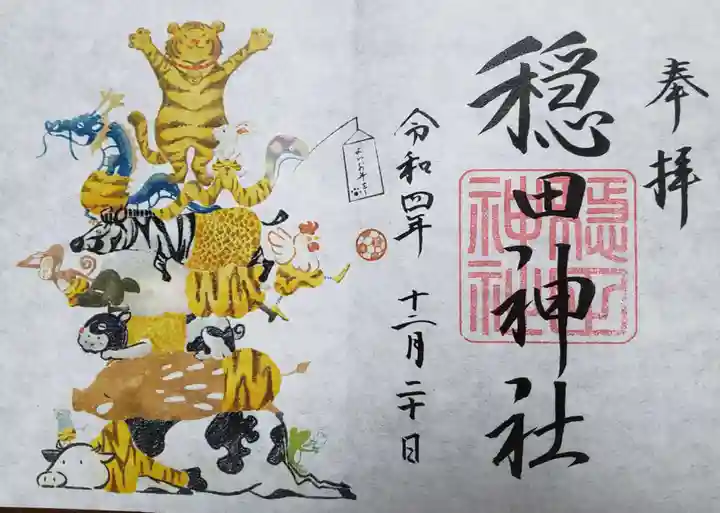 奉拝
穏田神社
穏田
神社
令和四年 十二月二十日
よいお年を